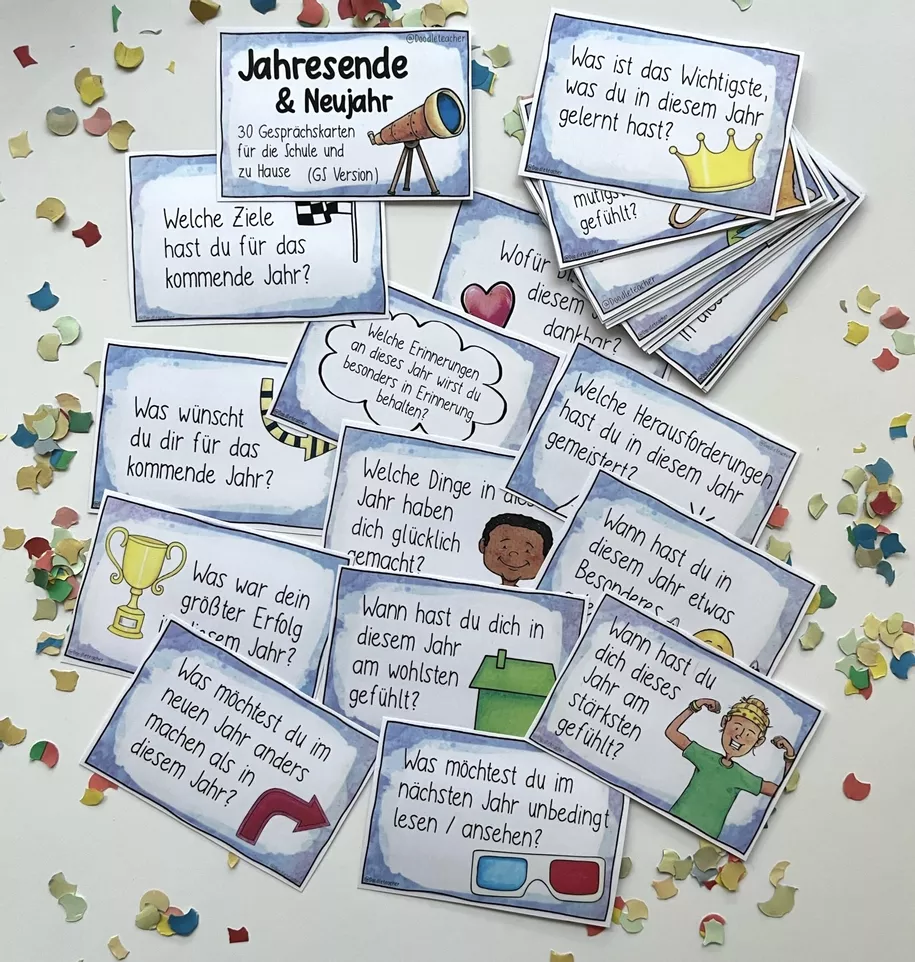 @Doodleteacher
Jahresende
& Neujahr
30 Gesprächskarten
für die Schule und
zu Hause (GS Version)
Was ist das Wichtigste,
was du in diesem Jahr
gelernt hast?
gefühlt?
@Doodleteacher
Welche Ziele
hast du für das
kommende Jahr?
Wofür
diesem
dankbar?
Welche Erinnerungen
an dieses Jahr wirst du
besonders in Erinnerung
behalten?
Welche Herausforderungen
hast du in diesem Jahr
gemeistert?
Was wünscht
du dir für das
kommende Jahr?
Welche Dinge in
Jahr haben
dich glücklich
gemacht?
Wann hast du in
diesem Jahr etwas
Besonderes
Was war dein
größter Erfolg
in diesem Jahr?
Wann hast du dich in
diesem Jahr
am wohlsten
gefühlt?
Wann hast du
dich dieses
Jahr am
stärksten
gefühlt?
Was möchtest du im
neuen Jahr anders
machen als in
diesem Jahr?
Was möchtest du im
nächsten Jahr unbedingt
lesen / ansehen?